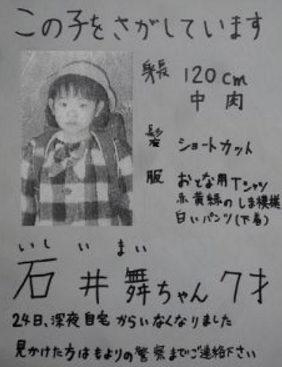 この子をさがしています
身長 120cm
中肉
髪 ショートカット
服 おとな用Tシャツ
赤黄緑のしま模様
白いパンツ(下着)
いし い まい
石井舞ちゃん 7才
24日、深夜自宅からいなくなりました
見かけた方はもよりの警察までご連絡下さい